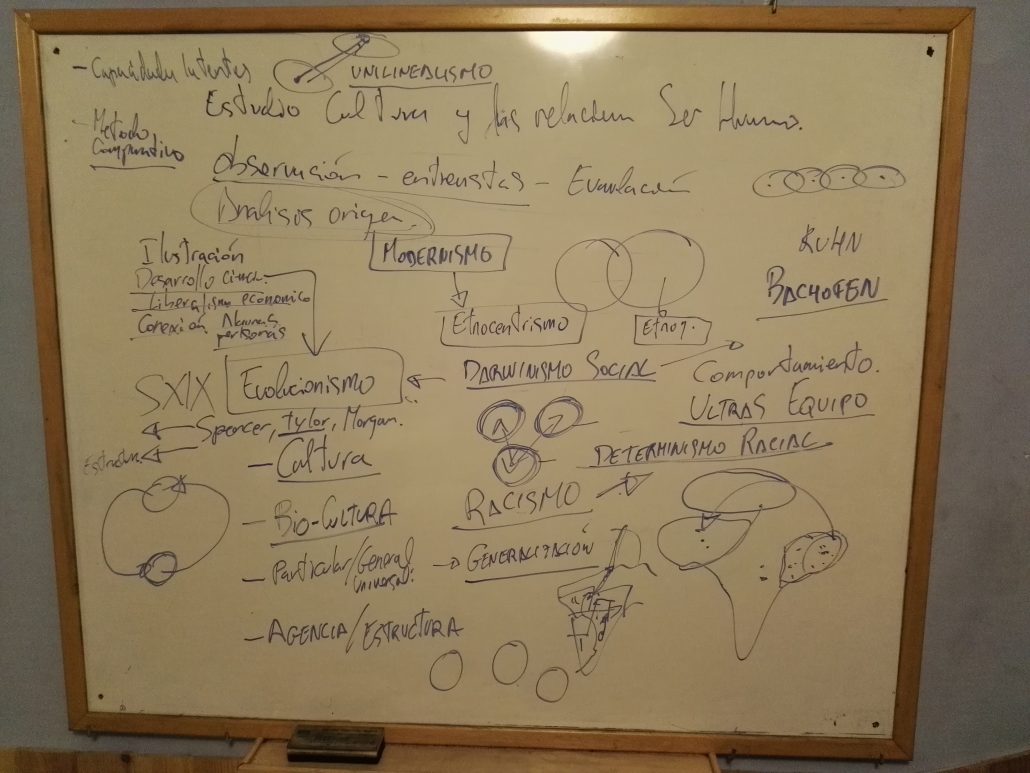 - Capacidades latentes
UNILINEALISMO
Estudio Cultura y las relaciones Ser Humano.
- Metodo
Comparativo
Observación - entrevistas - Evaluación
Analisis origen
Ilustración
Desarrollo cienc.
Liberalismo economico
Conexión Nuevas
personas
MODERNISMO
Etnocentrismo
Etnog.
KUHN
BACHOFEN
SXIX
Evolucionismo
DARWINISMO SOCIAL
Comportamiento.
ULTRAS EQUIPO
Spencer, tylor, Morgan.
Estructu.
- Cultura
DETERMINISMO RACIAL
RACISMO
- BIO-CULTURA
- Particular/General
universal.
GENERALIZACIÓN
- AGENCIA/ESTRUCTURA